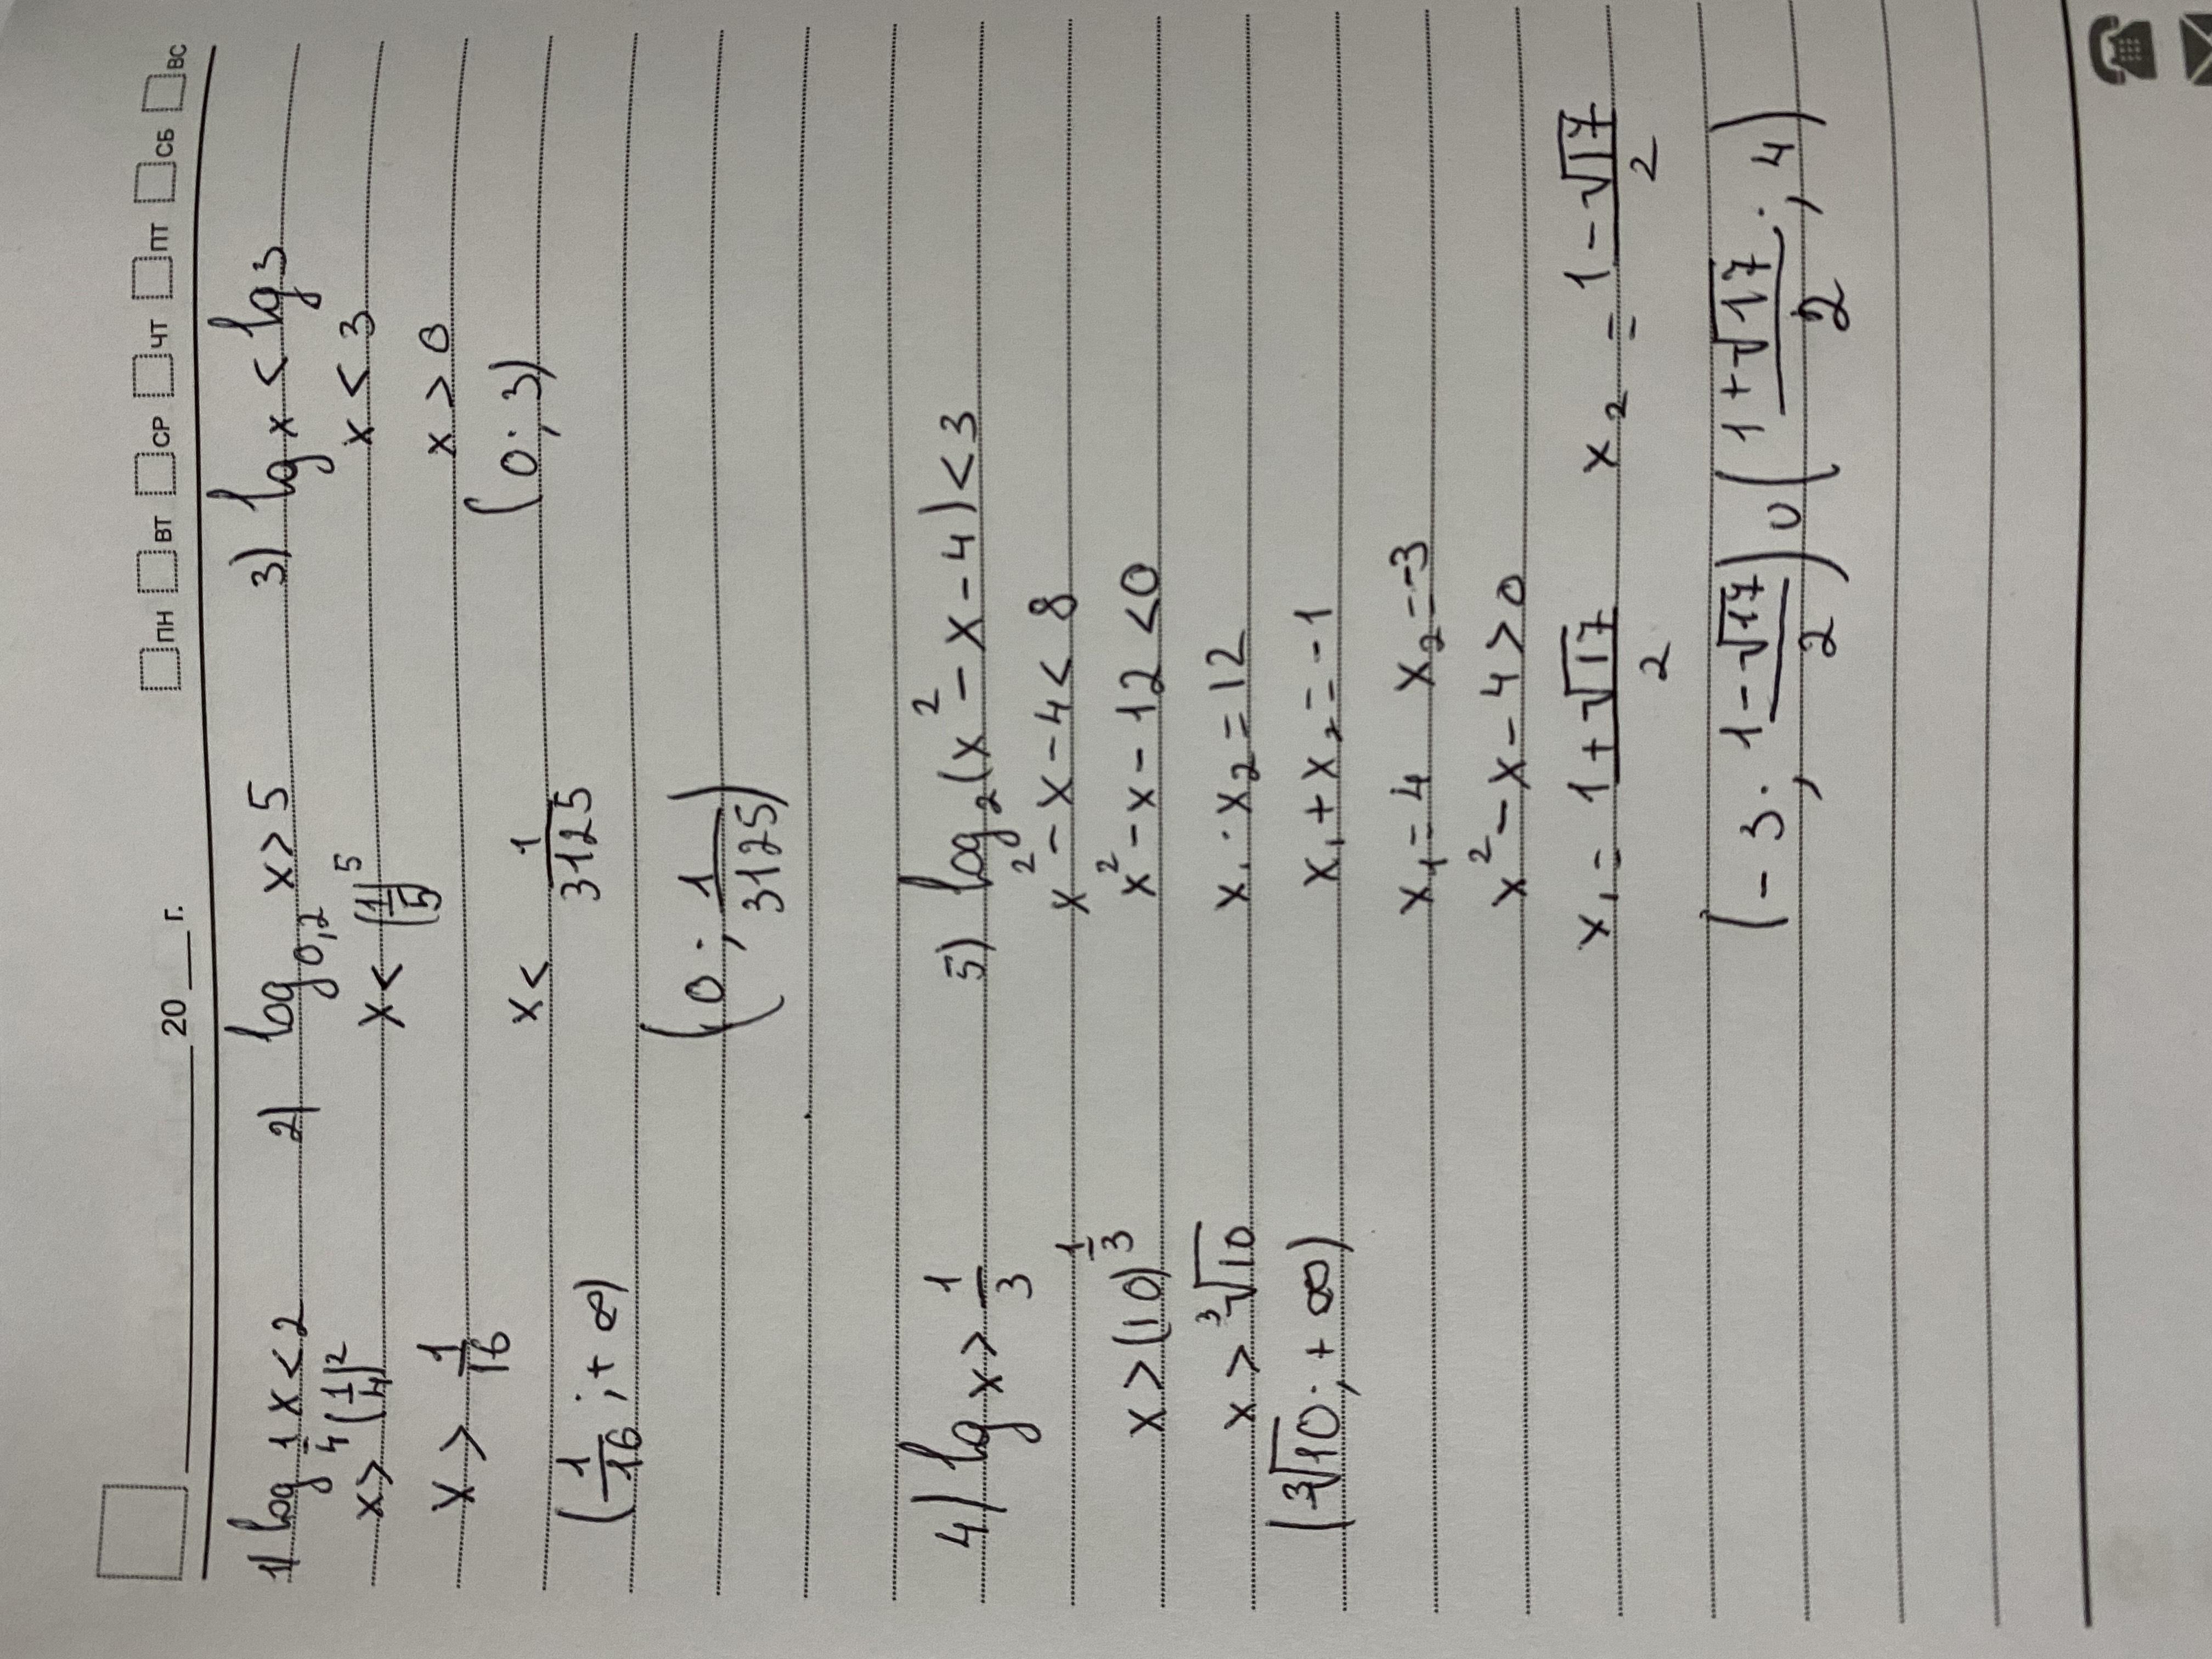 20 г. ПН ВТ СР ЧТ ПТ СБ ВС
1) log 1/4 x < 2
x > (1/4)²
x > 1/16
(1/16 ; + ∞)
2) log 0,2 x > 5
x < (1/5)⁵
x < 1/3125
(0 ; 1/3125)
3) lg x < lg 3
x < 3
x > 0
(0 ; 3)
4) lg x > 1/3
x > (10)^1/3
x > ³√10
(³√10 ; + ∞)
5) log₂(x² - x - 4) < 3
x² - x - 4 < 8
x² - x - 12 < 0
x₁ · x₂ = 12
x₁ + x₂ = -1
x₁ = 4 x₂ = -3
x² - x - 4 > 0
x₁ = 1 + √17 / 2 x₂ = 1 - √17 / 2
(-3 ; 1 - √17 / 2) ∪ (1 + √17 / 2 ; 4)